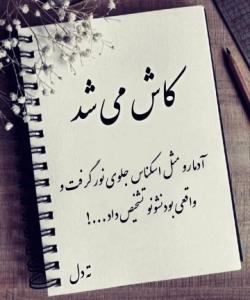 کاش می شد
آدمارو مثل اسکناس جلوی نور گرفت و
واقعی بودنشونو تشخیص داد...!
ته دل